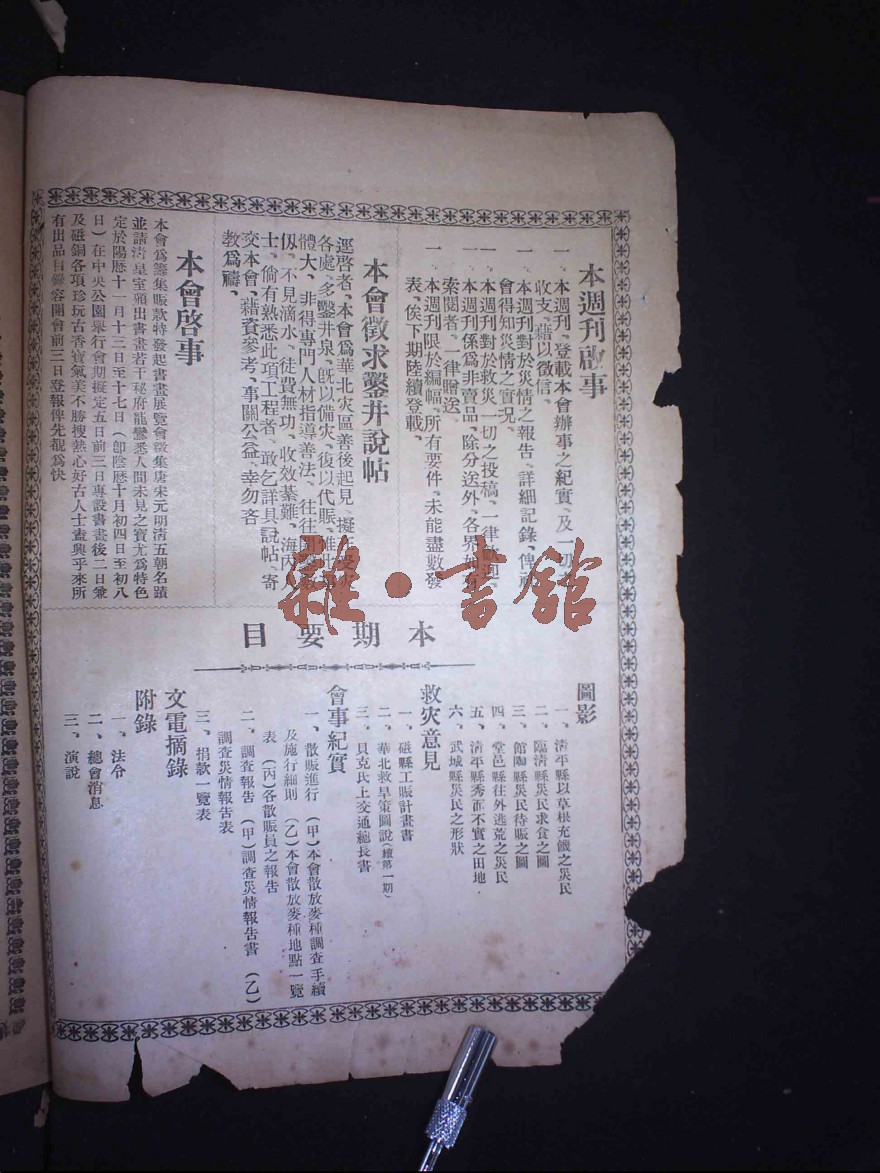 本週刊啟事
一、本週刊、登載本會辦事之紀實、及一切之
收支、藉以徵信、
一、本週刊對於災情之報告、詳細記錄、俾
會得知災情之實况、
一、本週刊對於救災一切之投稿、一律歡迎、
一、本週刊係為非賣品、除分送外、各界如有
索閱者、一律贈送、
一、本週刊限於編幅、所有要件、未能盡數發
表、俟下期陸續登載、
本會徵求鑿井說帖
逕啓者、本會爲華北灾區善後起見、擬在災
各處、多鑿井泉、旣以備灾、復以代賑、惟
體大、非得專門人材指導善法、往往
仭、不見滴水、徒費無功、收效綦難、海內人
士、倘有熟悉此項工程者、敢乞詳具說帖、寄
交本會、藉資參考、事關公益、幸勿吝
教爲禱、
本會啓事
本會爲籌集賑款特發起書畫展覽會徵集唐宋元明清五朝名蹟
並請清皇室頒出書畫若干秘府龍鸞悉人間未見之寶尤爲特色
定於陽歷十一月十三日至十七日（卽陰歷十月初四日至初八
日）在中央公園舉行會期擬定五日前三日專設書畫後二日兼
及磁銅各項珍玩古香寶氣美不勝搜熱心好古人士盍興乎來所
有出品目錄容開會前三日登報俾先覩爲快
本期要目
圖影
一、清平縣以草根充饑之災民
二、臨清縣災民求食之圖
三、館陶縣災民待賑之圖
四、堂邑縣往外逃荒之災民
五、清平縣秀而不實之田地
六、武城縣災民之形狀
救灾意見
一、磁縣工賑計畫書
二、華北救旱策圖說（續第一期）
三、貝克氏上交通總長書
會事紀實
一、散賑進行　（甲）本會散放麥種調查手續
及施行細則　（乙）本會散放麥種地點一覽
表　（丙）各散賑員之報告
二、調查報告　（甲）調查災情報告書　（乙）
調查災情報告表
三、捐款一覽表
文電摘錄
附錄
一、法令
二、總會消息
三、演說
雜·書館